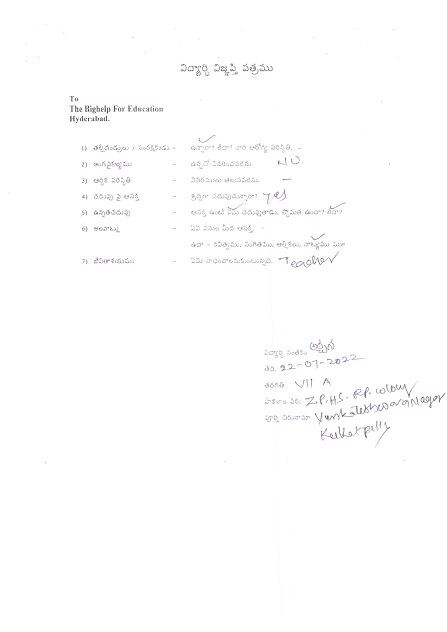 విద్యార్థి విజ్ఞప్తి పత్రము
To
The Bighelp For Education
Hyderabad.
1) తల్లిదండ్రులు / సంరక్షకుడు - ఉన్నారా? లేదా? వారి ఆరోగ్య పరిస్థితి. -
2) అంగవైకల్యము - ఉన్నచో వివరించవలెను NO
3) ఆర్థిక పరిస్థితి - వివరములు తెలుపవలెను. -
4) చదువు పై ఆసక్తి - శ్రద్ధగా చదువుచున్నారా? yes
5) ఉన్నతచదువు - ఆసక్తి ఉంటే ఏమి చదువుతాడు. స్తోమత ఉందా? లేదా?
6) అలవాట్లు - ఏఏ పనుల మీద ఆసక్తి. -
ఉదా - కవిత్వము, సంగీతము, ఆర్ట్‌కలు, నాట్యము
7) జీవితాశయము - ఏమి సాధించాలనుకుంటున్నది. Teacher
విద్యార్థి సంతకం అర్చన
తేది. 22-07-2022
తరగతి VII A
పాఠశాల పేరు Z.P.H.S. R.P. colony
పూర్తి చిరునామా Nagar